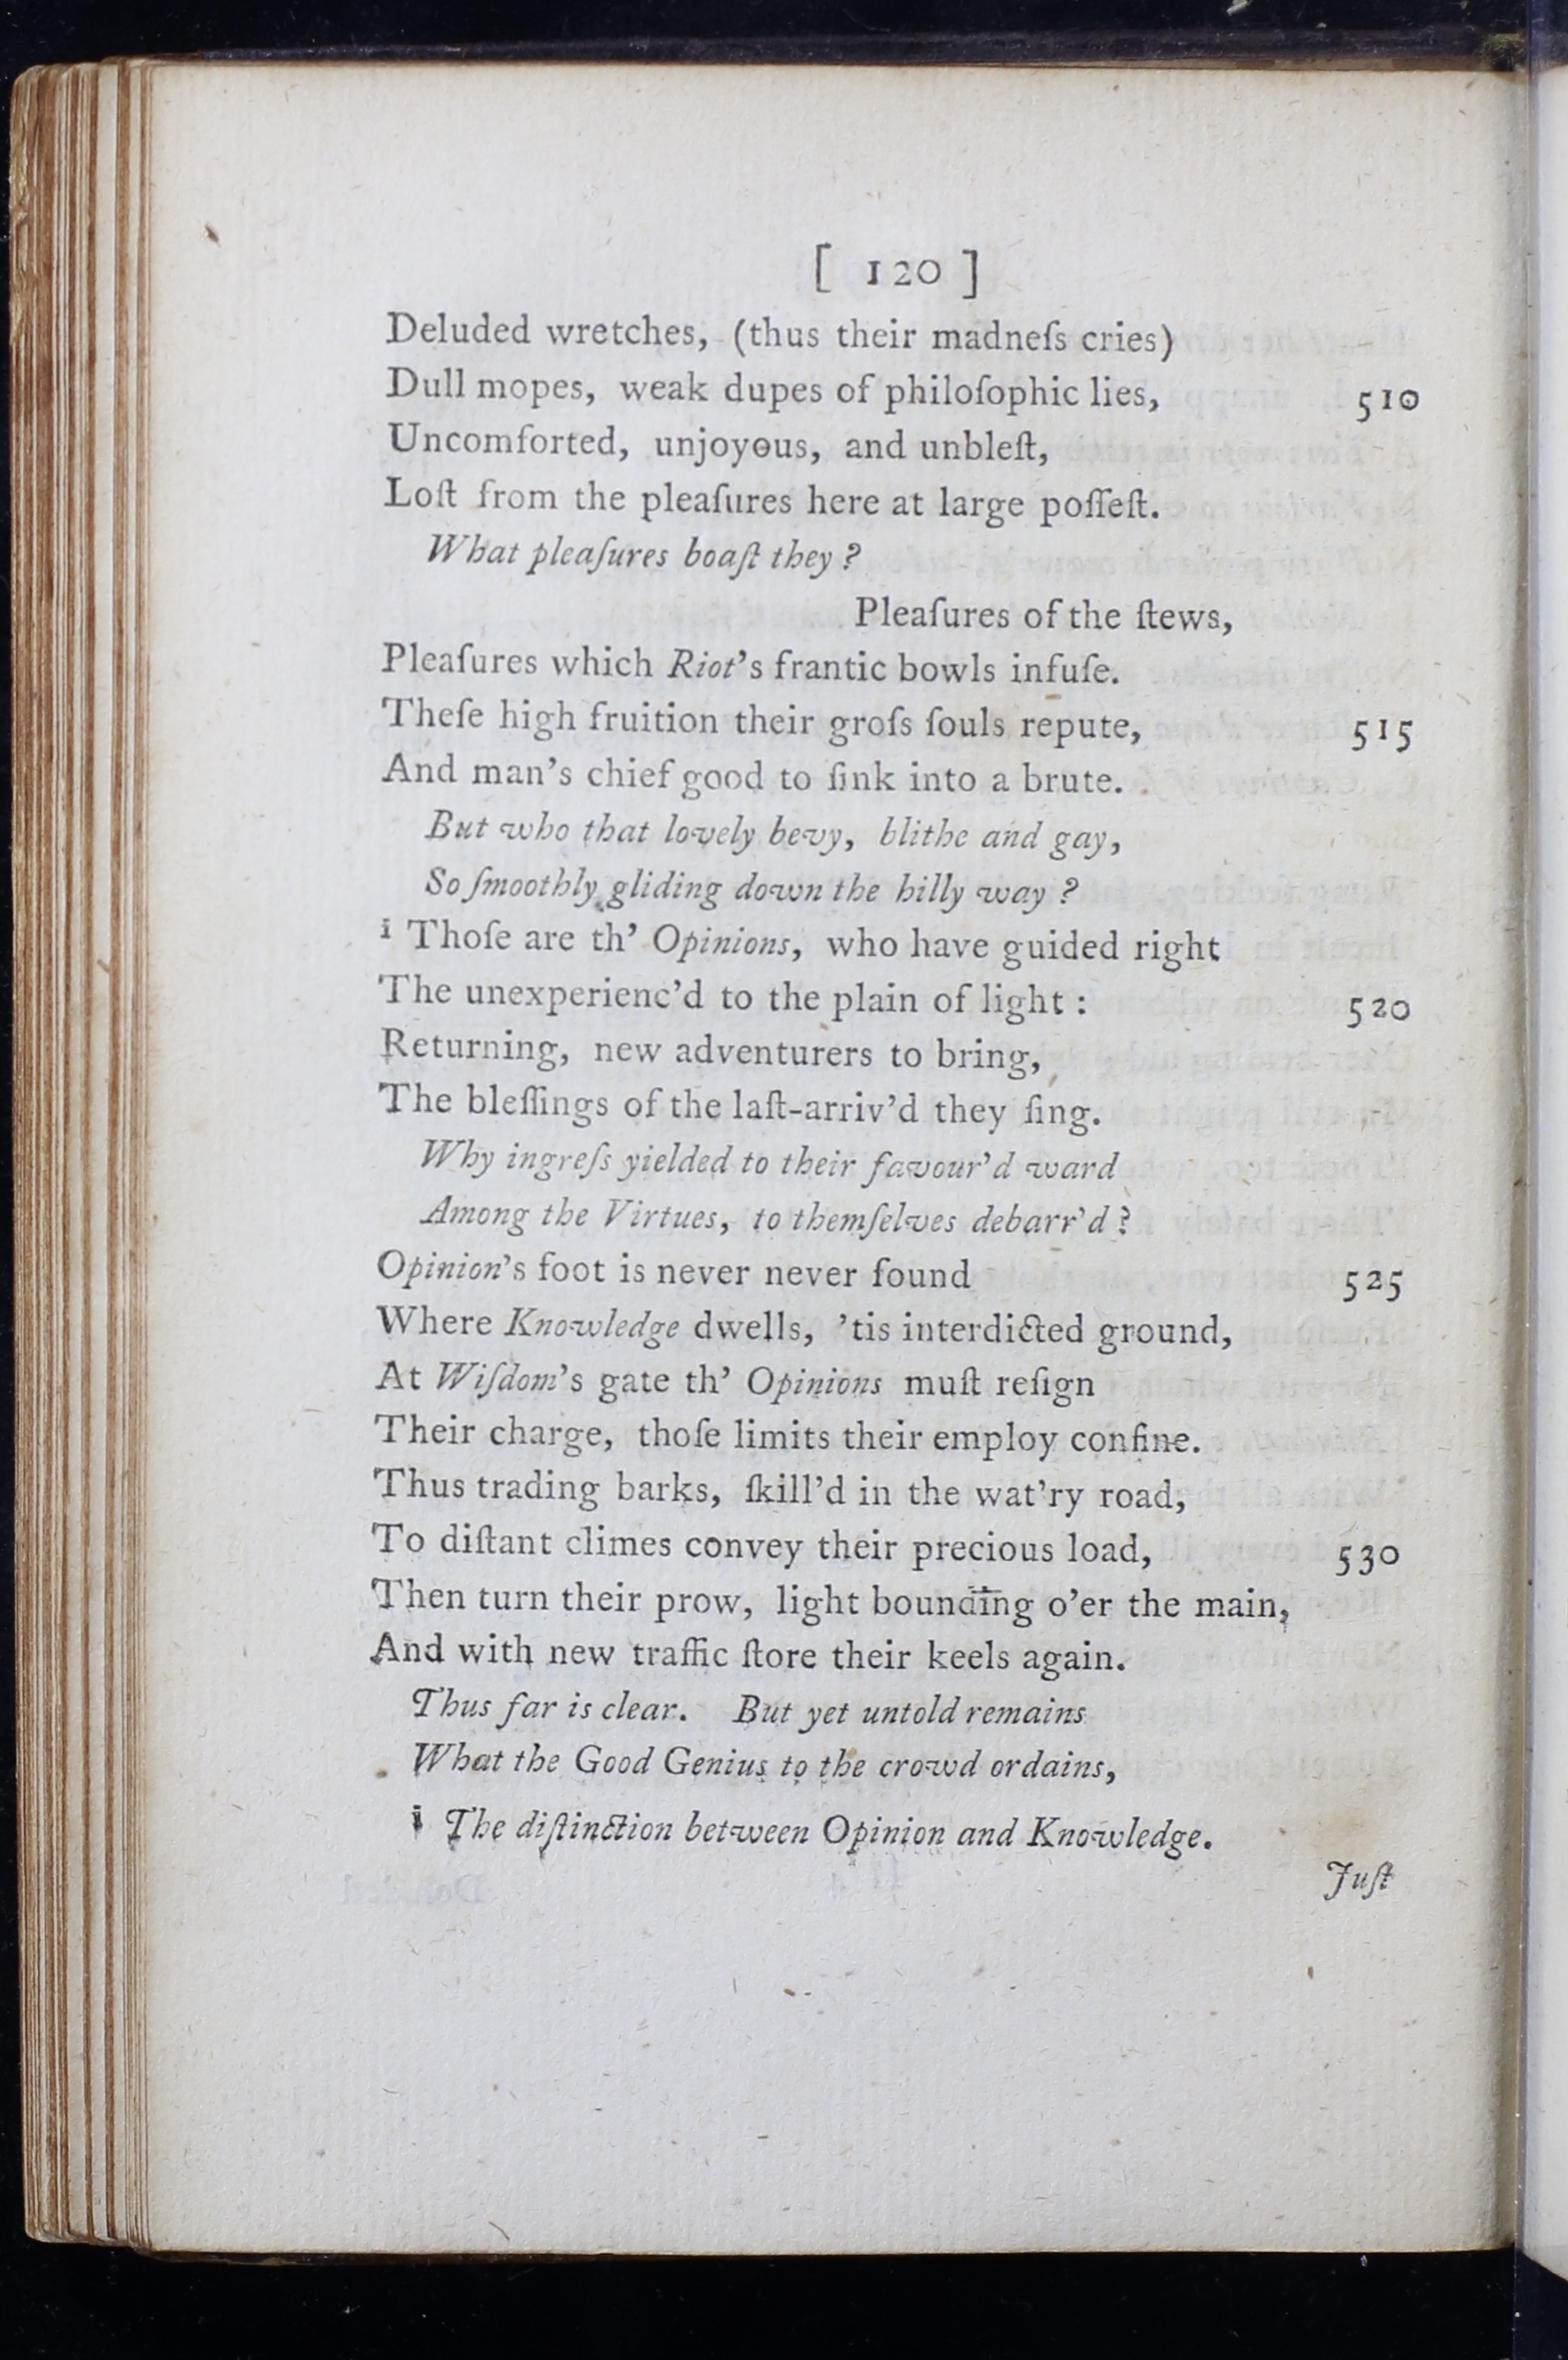 [ 120 ]
Deluded wretches, (thus their madneſs cries)
Dull mopes, weak dupes of philoſophic lies, 510
Uncomforted, unjoyous, and unbleſt,
Loſt from the pleaſures here at large poſſeſt.
What pleaſures boaſt they ?
Pleaſures of the ſtews,
Pleaſures which Riot's frantic bowls infuſe.
Theſe high fruition their groſs ſouls repute, 515
And man's chief good to ſink into a brute.
But who that lovely bevy, blithe and gay,
So ſmoothly gliding down the hilly way ?
i Thoſe are th' Opinions, who have guided right
The unexperienc'd to the plain of light : 520
Returning, new adventurers to bring,
The bleſſings of the laſt-arriv'd they ſing.
Why ingreſs yielded to their favour'd ward
Among the Virtues, to themſelves debarr'd ?
Opinion's foot is never never found 525
Where Knowledge dwells, 'tis interdicted ground,
At Wiſdom's gate th' Opinions muſt reſign
Their charge, thoſe limits their employ confine.
Thus trading barks, ſkill'd in the wat'ry road,
To diſtant climes convey their precious load, 530
Then turn their prow, light bounding o'er the main,
And with new traffic ſtore their keels again.
Thus far is clear. But yet untold remains
What the Good Genius to the crowd ordains,
i The diſtinction between Opinion and Knowledge.
Juſt